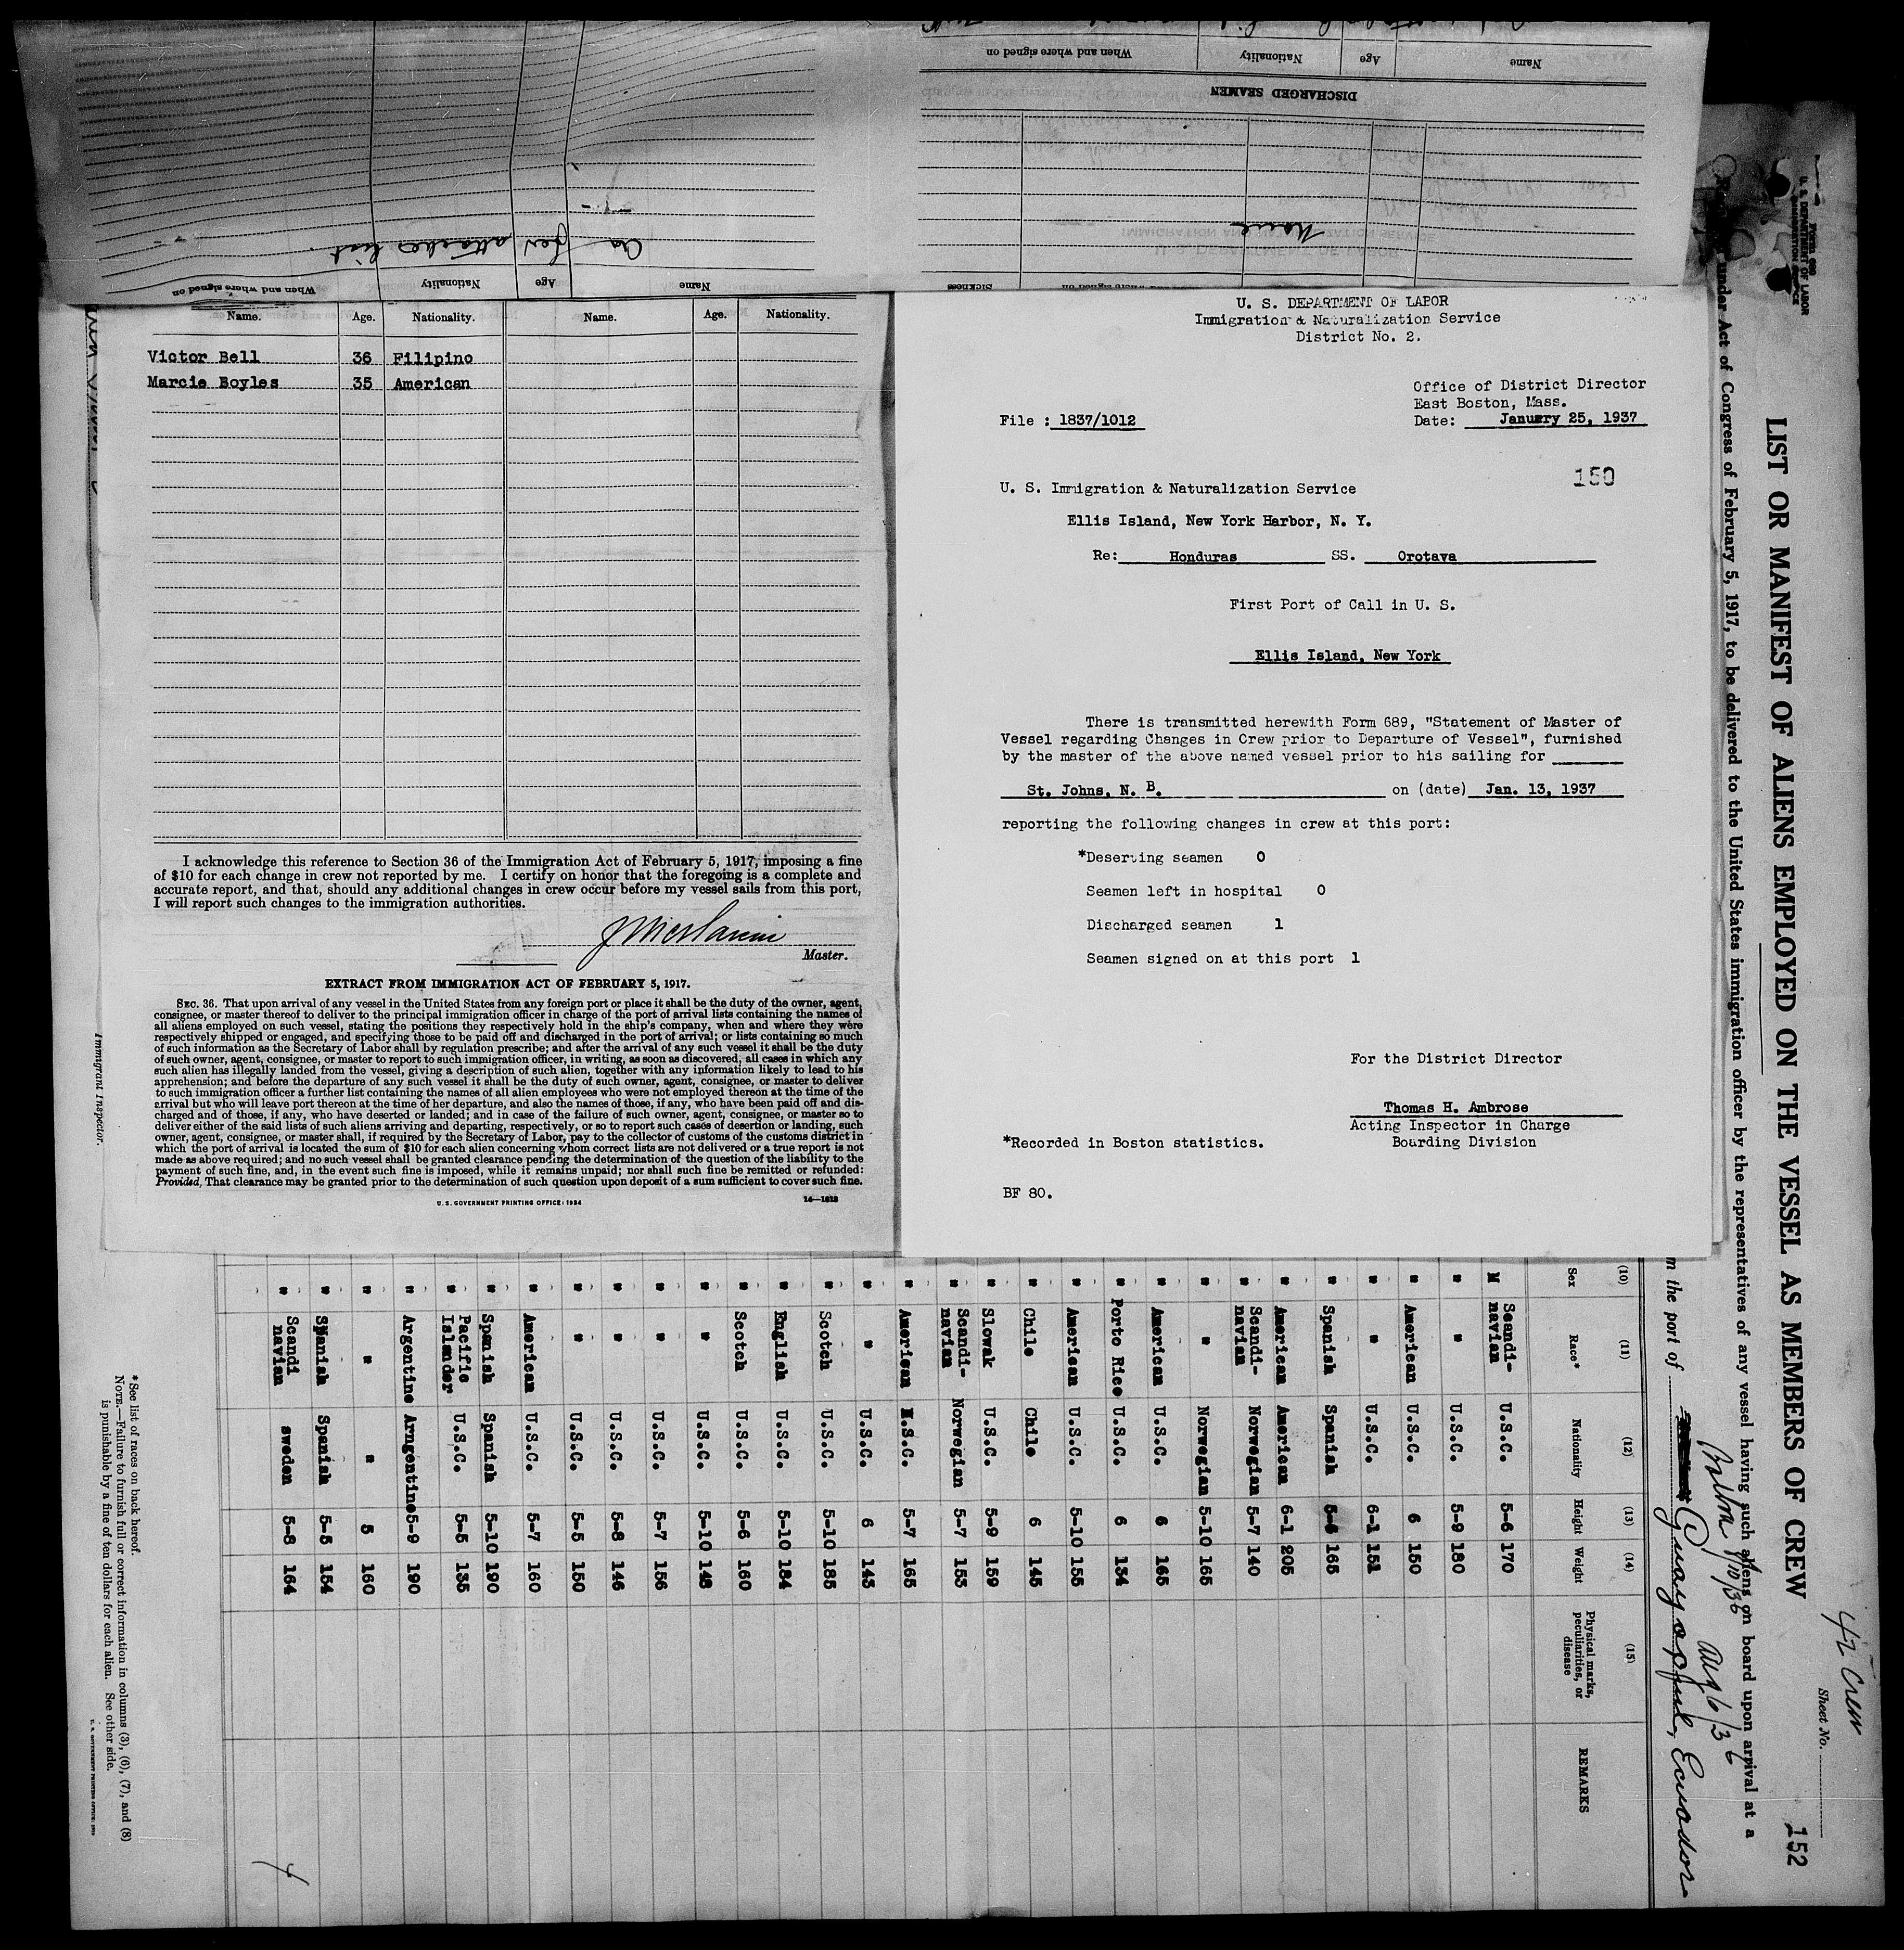 Name Age Nationality When and where signed on
DISCHARGED SEAMEN
None
Name Age Nationality When and where signed on
As per attaches list
Name. Age. Nationality. Name. Age. Nationality.
Victor Bell 36 Filipino
Marcie Boyles 35 American
I acknowledge this reference to Section 36 of the Immigration Act of February 5, 1917, imposing a fine
of $10 for each change in crew not reported by me. I certify on honor that the foregoing is a complete and
accurate report, and that, should any additional changes in crew occur before my vessel sails from this port,
I will report such changes to the immigration authorities.
Master.
EXTRACT FROM IMMIGRATION ACT OF FEBRUARY 5, 1917.
SEC. 36. That upon arrival of any vessel in the United States from any foreign port or place it shall be the duty of the owner, agent,
consignee, or master thereof to deliver to the principal immigration officer in charge of the port of arrival lists containing the names of
all aliens employed on such vessel, stating the positions they respectively hold in the ship's company, when and where they were
respectively shipped or engaged, and specifying those to be paid off and discharged in the port of arrival; or lists containing so much
of such information as the Secretary of Labor shall by regulation prescribe; and after the arrival of any such vessel it shall be the duty
of such owner, agent, consignee, or master to report to such immigration officer, in writing, as soon as discovered, all cases in which any
such alien has illegally landed from the vessel, giving a description of such alien, together with any information likely to lead to his
apprehension; and before the departure of any such vessel it shall be the duty of such owner, agent, consignee, or master to deliver
to such immigration officer a further list containing the names of all alien employees who were not employed thereon at the time of the
arrival but who will leave port thereon at the time of her departure, and also the names of those, if any, who have been paid off and dis-
charged and of those, if any, who have deserted or landed; and in case of the failure of such owner, agent, consignee, or master so to
deliver either of the said lists of such aliens arriving and departing, respectively, or so to report such cases of desertion or landing, such
owner, agent, consignee, or master shall, if required by the Secretary of Labor, pay to the collector of customs of the customs district in
which the port of arrival is located the sum of $10 for each alien concerning whom correct lists are not delivered or a true report is not
made as above required; and no such vessel shall be granted clearance pending the determination of the question of the liability to the
payment of such fine, and, in the event such fine is imposed, while it remains unpaid; nor shall such fine be remitted or refunded:
Provided, That clearance may be granted prior to the determination of such question upon deposit of a sum sufficient to cover such fine.
U. S. GOVERNMENT PRINTING OFFICE: 1934 14—1613
U. S. DEPARTMENT OF LABOR
Immigration & Naturalization Service
District No. 2.
Office of District Director
East Boston, Mass.
File : 1837/1012 Date: January 25, 1937
150
U. S. Immigration & Naturalization Service
Ellis Island, New York Harbor, N. Y.
Re: Honduras SS. Orotava
First Port of Call in U. S.
Ellis Island, New York
There is transmitted herewith Form 689, "Statement of Master of
Vessel regarding Changes in Crew prior to Departure of Vessel", furnished
by the master of the above named vessel prior to his sailing for
St. Johns, N. B. on (date) Jan. 13, 1937
reporting the following changes in crew at this port:
*Deserting seamen 0
Seamen left in hospital 0
Discharged seamen 1
Seamen signed on at this port 1
For the District Director
Thomas H. Ambrose
Acting Inspector in Charge
Boarding Division
*Recorded in Boston statistics.
BF 80.
Immigrant Inspector.
Form 680
U. S. DEPARTMENT OF LABOR
IMMIGRATION SERVICE
42 Crew
Sheet No.
152
LIST OR MANIFEST OF ALIENS EMPLOYED ON THE VESSEL AS MEMBERS OF CREW
under Act of Congress of February 5, 1917, to be delivered to the United States immigration officer by the representatives of any vessel having such aliens on board upon arrival at a
Aug 6/36
m the port of Guayaquil, Ecuador
(10) (11) (12) (13) (14) (15)
Sex Race* Nationality Height Weight Physical marks, peculiarities, or disease REMARKS
M Scandi-navian U.S.C. 5-6 170
" " U.S.C. 5-9 180
" American U.S.C. 6 150
" " U.S.C. 6-1 151
" Spanish Spanish 5-6 165
" American American 6-1 205
" Scandi-navian Norwegian 5-7 140
" " Norwegian 5-10 165
" American U.S.C. 6 165
" Porto Rice U.S.C. 6 134
" American U.S.C. 5-10 155
" Chile Chile 6 145
" Slowak U.S.C. 5-9 159
" Scandi-navian Norwegian 5-7 153
" American U.S.C. 5-7 165
" " U.S.C. 6 143
" Scotch U.S.C. 5-10 185
" English U.S.C. 5-10 184
" Scotch U.S.C. 5-6 160
" " U.S.C. 5-10 148
" " U.S.C. 5-7 156
" " U.S.C. 5-8 146
" " U.S.C. 5-5 150
" American U.S.C. 5-7 160
" Spanish Spanish 5-10 190
" Pacific Islander U.S.C. 5-5 135
" Argentine Arngentine 5-9 190
" " " 5 160
" Spanish Spanish 5-5 154
" Scandi navian sweden 5-8 164
* See list of races on back hereof.
NOTE.—Failure to furnish full or correct information in columns (3), (6), (7), and (8)
is punishable by a fine of ten dollars for each alien. See other side.